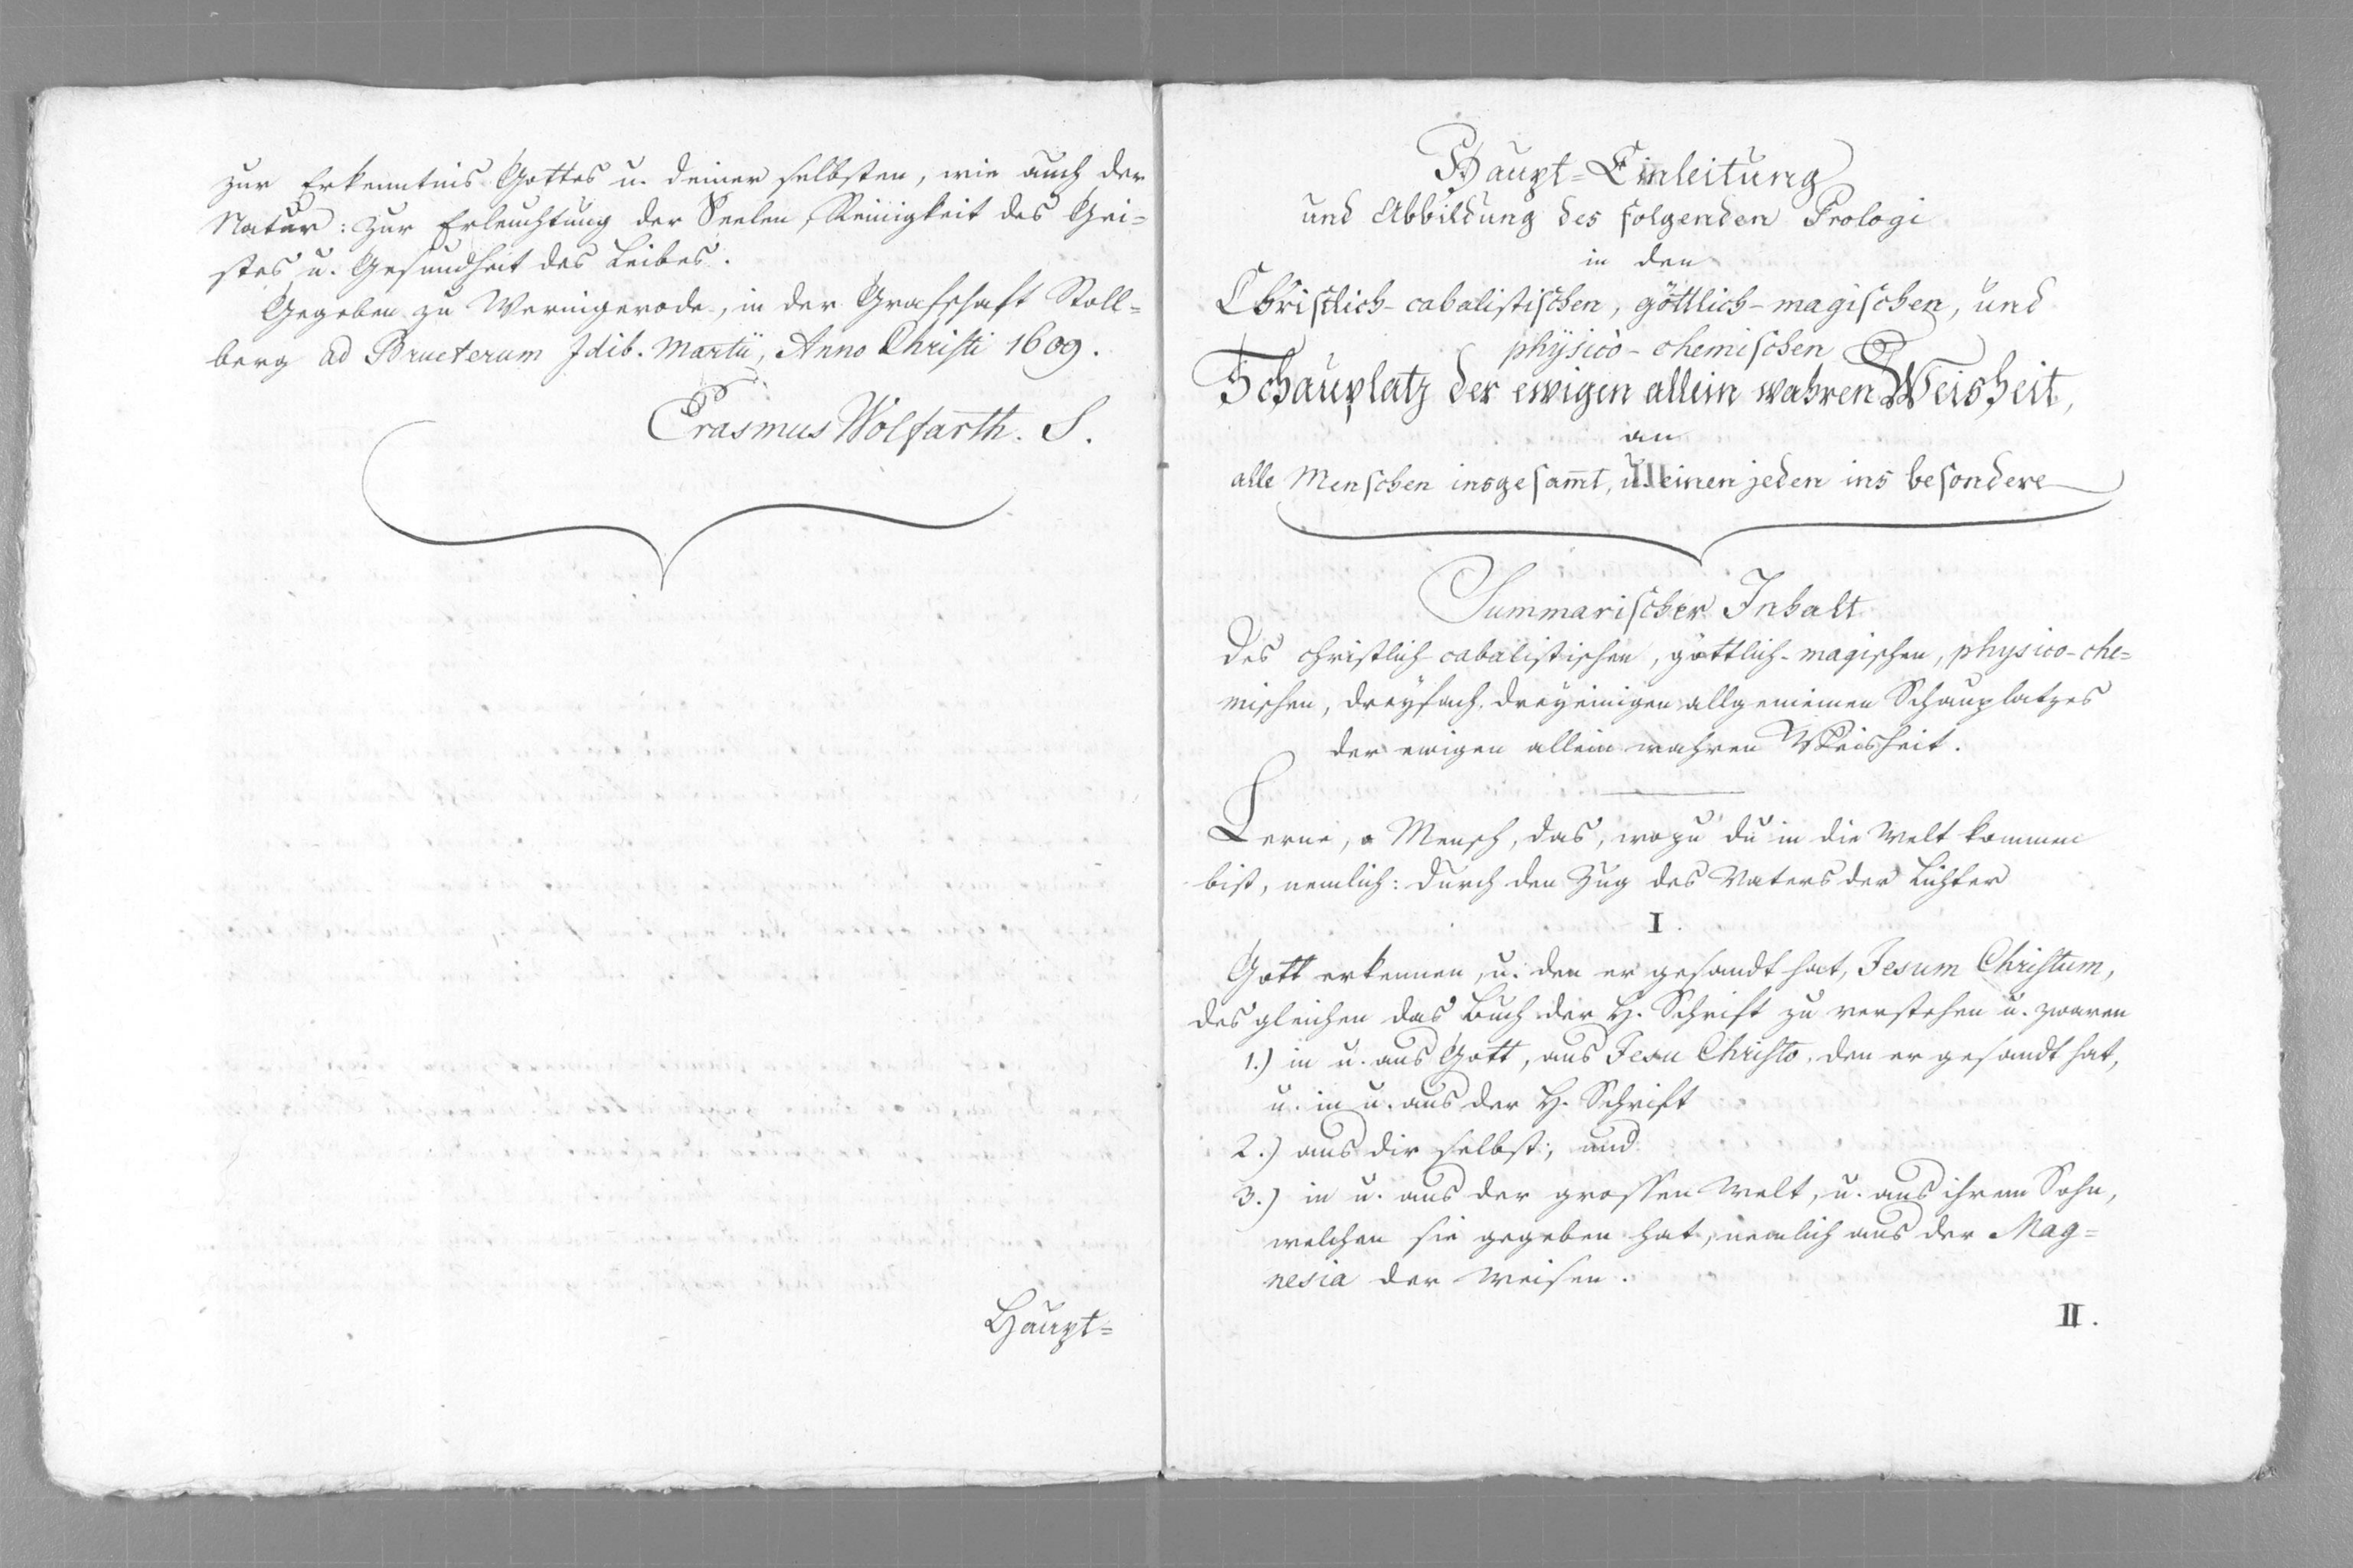 zur Erkenntnis Gottes u. deiner selbsten, wie auch der
Natur: zur Erleuchtung der Seelen, Reinigkeit des Gei=
stes u. Gesundheit des Leibes.
Gegeben zu Wernigerode, in der Grafschaft Stoll=
berg ad Bructerum Idib. Martii, Anno Christi 1609.
Erasmus Wolfarth. S.
Haupt=
Haupt=Einleitung
und Abbildung des folgenden Prologi
in den
Christlich-cabalistischen, göttlich-magischen, und
physico-chemischen
Schauplatz der ewigen allein wahren Weisheit,
an
alle Menschen insgesam̅t, u. einen jeden ins besondere
Summarischer Inhalt
des christlich-cabalistischen, göttlich-magischen, physico-che=
mischen, dreyfach dreyeinigen allgemeinen Schauplatzes
der ewigen allein wahren Weisheit.
Lerne, o Mensch, das, wozu du in die Welt kommen
bist, nemlich: durch den Zug des Vaters der Lichter
I.
Gott erkennen, u. den er gesandt hat, Jesum Christum,
des gleichen das Buch der H. Schrift zu verstehen u. zwaren
1.) in u. aus Gott, aus Jesu Christo, den er gesandt hat,
u. in u. aus der H. Schrift
2.) aus dir selbst; und
3.) in u. aus der grossen Welt, u. aus ihrem Sohn,
welchen sie gegeben hat, nemlich aus der Mag=
nesia der Weisen.
II.